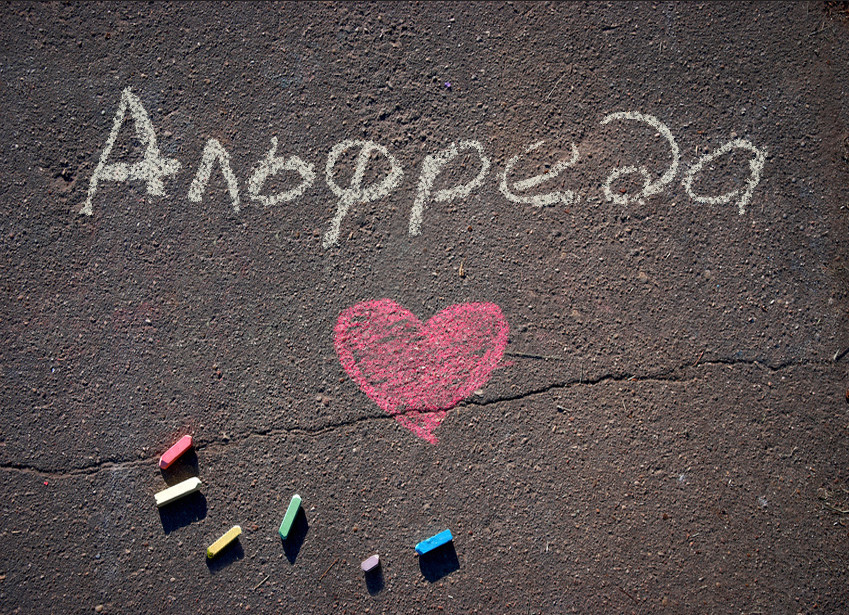 Альфреда